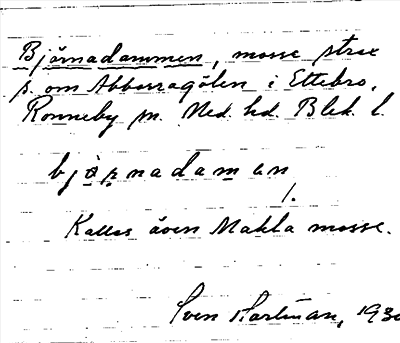 Björnadammen, mosse strax
s. om Abborragölen i Ettebro,
Ronneby sn. Med. hd. Blek. l.
björnadaman
1.
Kallas även Makla mosse.
Sven Hartman, 193